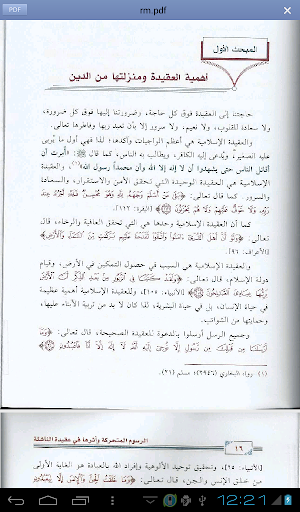 PDF
rm.pdf
المبحث الأول
أهمية العقيدة ومنزلتها من الدين
حاجتنا إلى العقيدة فوق كل حاجة، وضرورتنا إليها فوق كل ضرورة،
ولا سعادة للقلوب، ولا نعيم، ولا سرور إلا بأن تعبد ربها وفاطرها تعالى.
والعقيدة الإسلامية هي أعظم الواجبات وآكدها؛ لذا فهي أول ما
عليه الصغير، ويدعى إليه الكافر، ويطالب به الناس، كما قال ﷺ: «أمرت أن
أقاتل الناس حتى يشهدوا أن لا إله إلا الله وأن محمداً رسول الله»(١)، والعقيدة
الإسلامية هي العقيدة الوحيدة التي تحقق الأمن والاستقرار، والسعادة
والسرور. كما قال تعالى: ﴿بلى من أسلم وجهه لله وهو محسن فله أجره عند
ربه ولا خوف عليهم ولا هم يحزنون﴾ [البقرة: ١١٢].
كما أن العقيدة الإسلامية وحدها هي التي تحقق العافية والرخاء، قال
تعالى: ﴿ولو أن أهل القرى آمنوا واتقوا لفتحنا عليهم بركات من السماء والأرض﴾
[الأعراف: ٩٦].
والعقيدة الإسلامية هي السبب في حصول التمكين في الأرض، وقيام
دولة الإسلام، قال تعالى: ﴿ولقد كتبنا في الزبور من بعد الذكر أن الأرض
يرثها عبادي الصالحون﴾ [الأنبياء: ١٠٥]، وللعقيدة الإسلامية أهمية عظيمة
في حياة الإنسان، بل في حياة البشرية، لذا كان لا بد من تربية الأبناء عليها،
وحمايتها من الشوائب.
وجميع الرسل أرسلوا بالدعوة للعقيدة الصحيحة، قال تعالى: ﴿وما
أرسلنا من قبلك من رسول إلا نوحي إليه أنه لا إله إلا أنا فاعبدون﴾
(١) رواه البخاري (٢٩٤٦)؛ مسلم (٢١).
١٦
الرسوم المتحركة وأثرها في عقيدة الناشئة
[الأنبياء: ٢٥]، وتحقيق توحيد الألوهية وإفراد الله بالعبادة هو الغاية الأولى
من خلق الإنس والجن، قال تعالى: ﴿وما خلقت الجن والإنس إلا ليعبدون
12:21